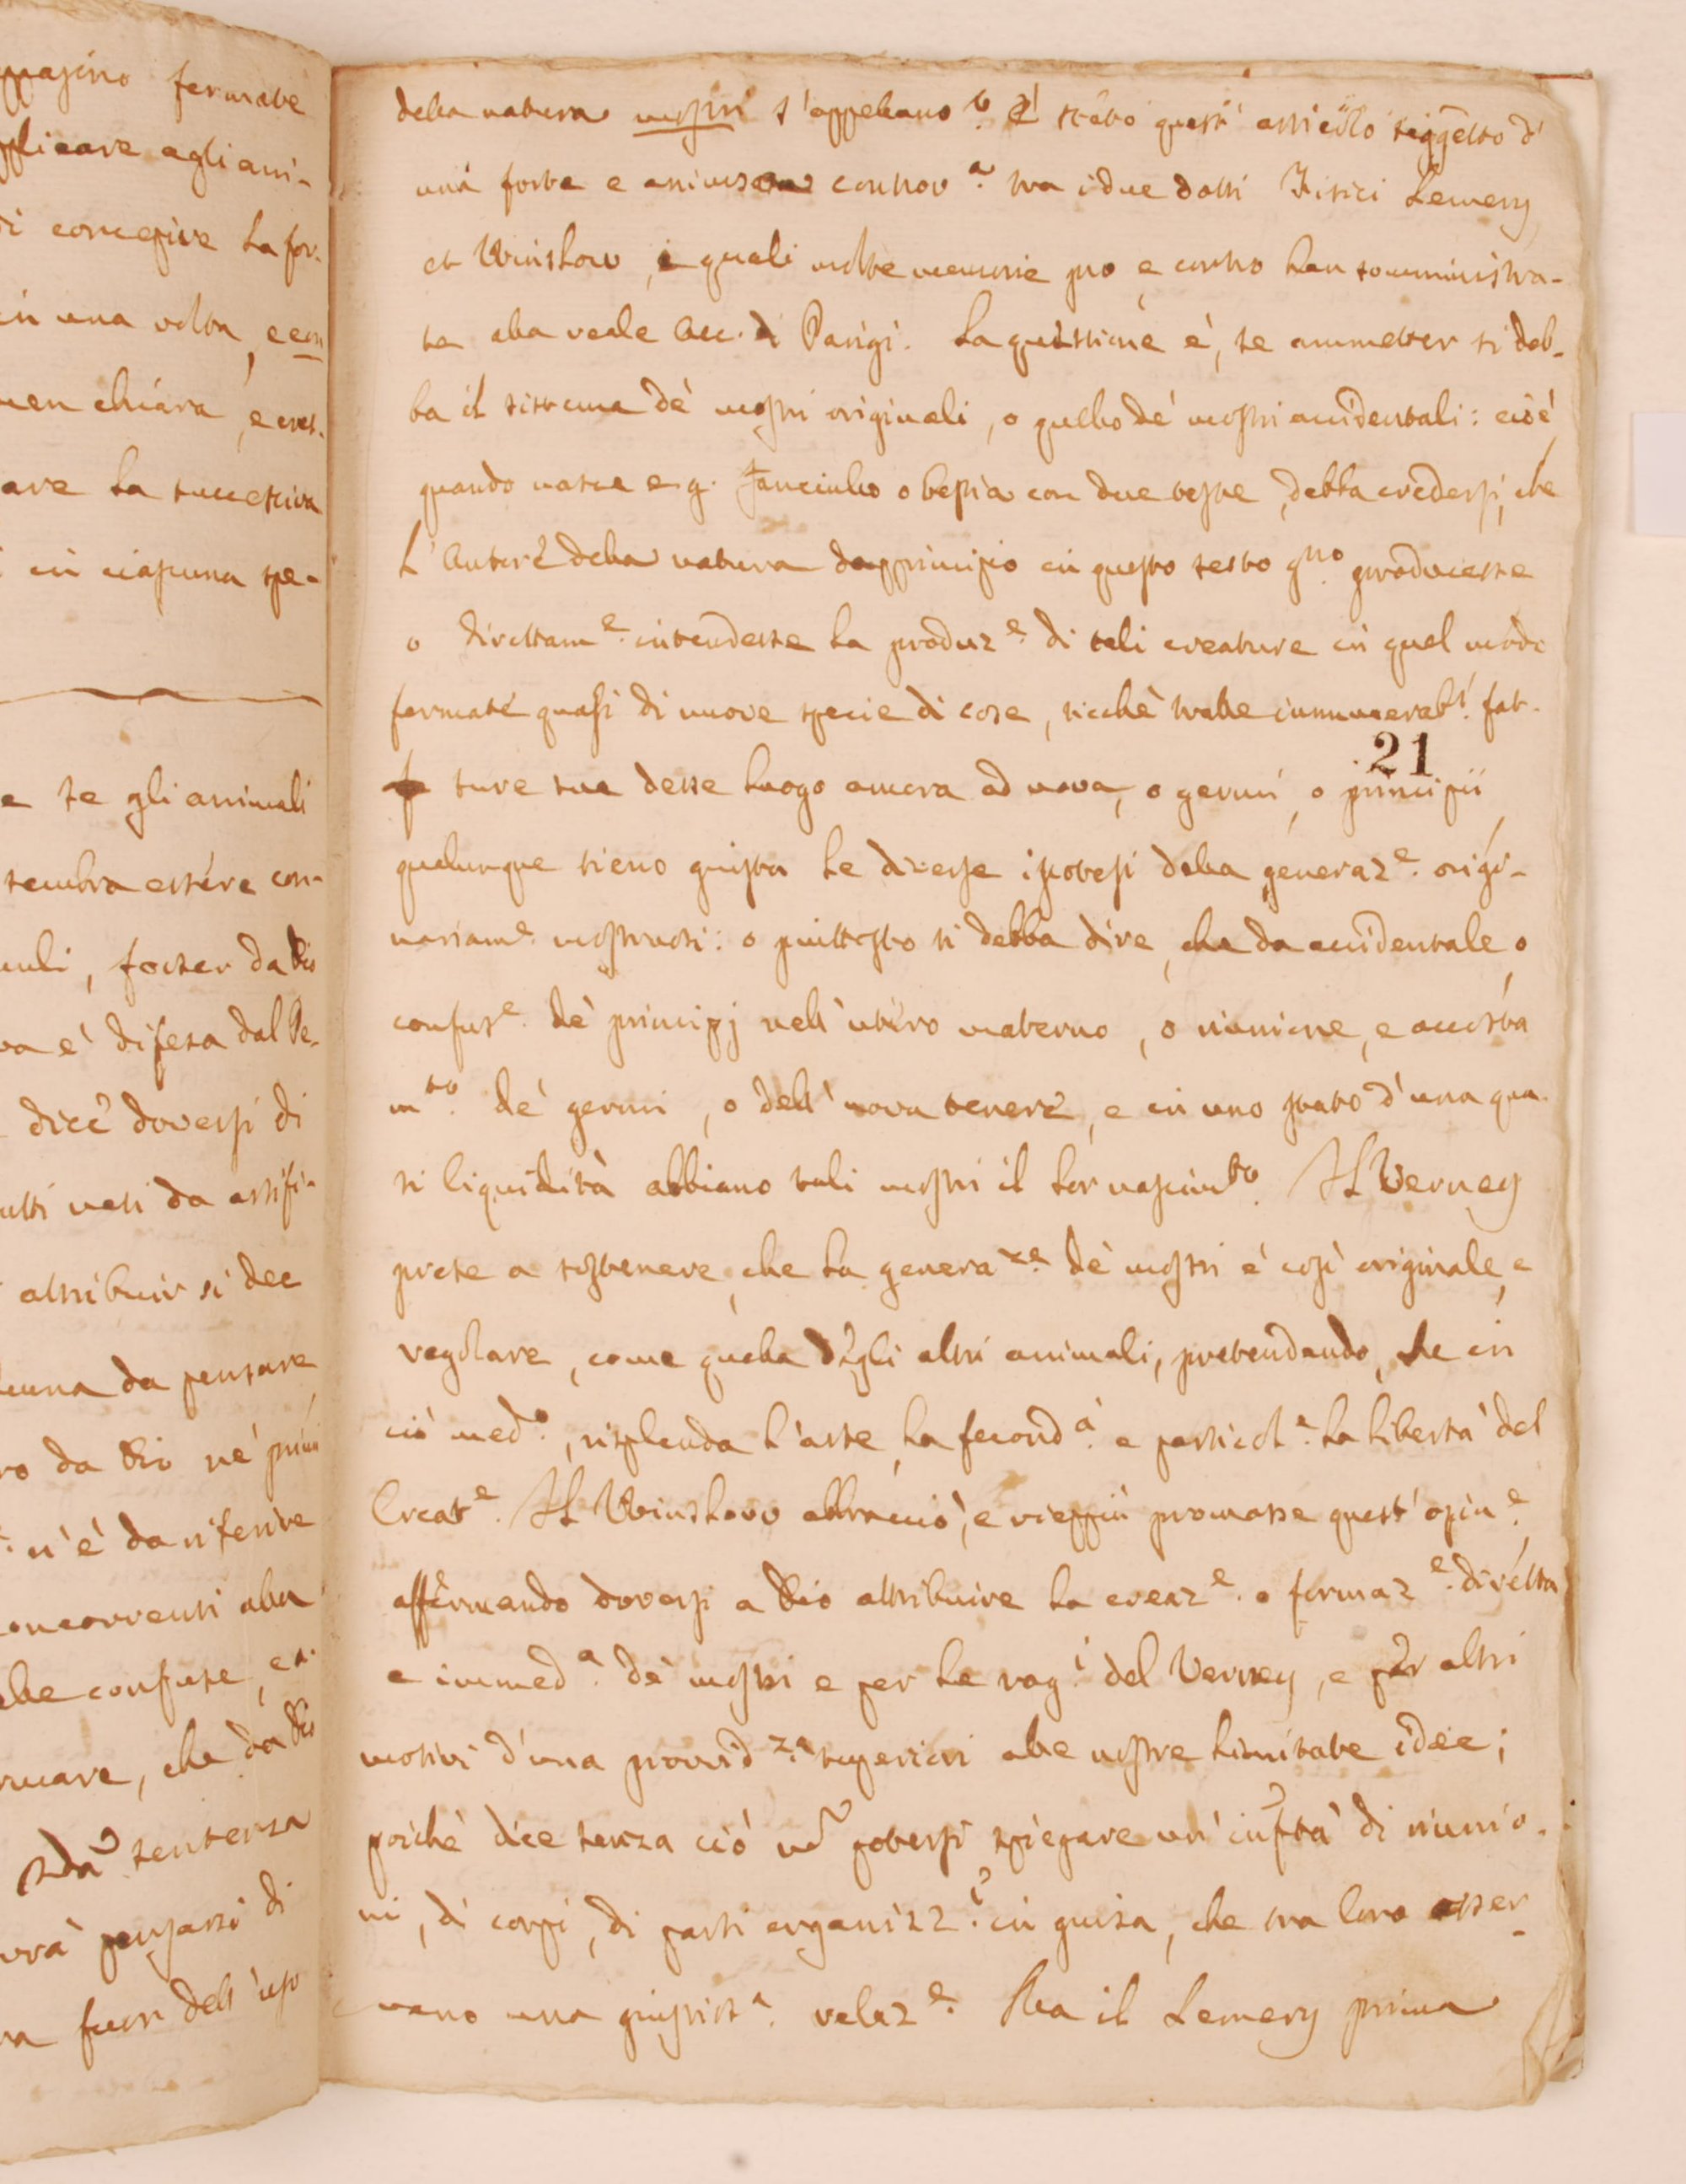 ppagino formate
pplicare agli ani-
di concepire la for-
in una volta, e con
men chiara, e cres.
are la successiva
in ciascuna spe-
e se gli animali
sembra essere con-
culi, fosser da Dio
va e' difesa dal Re-
dice doversi di
utti nati da artifi-
attribuir si dee
cuna da pensare
ro da Dio ne' primi
n'è da riferire
concorrenti alla
che confuse, e s.
rmare, che da Dio
sentenza
vrà pensarsi di
ra fuor dell'uso
della natura mostri s'appellano? E' stato quest'articolo soggetto d'
una forte e animosa controv.a tra i due dotti Fisici Lemery,
et Winslow, i quali molte memorie pro, e contro han somministra-
te alla reale Acc. di Parigi. La quistione è, se ammetter si deb-
ba il sistema de' mostri originali, o quello de' mostri accidentali: cioè
quando nasce e.g. fanciullo o bestia con due teste, debba credersi, che
l'Autore della natura dapprincipio in questo sesto g.no producesse
o direttam.e intendesse la produz.e di tali creature in quel modo
formate quasi di nuove specie di cose, sicchè tralle innumerab.i fat-
ture sue desse luogo ancora ad uova, o germi, o principii
21
qualunque sieno giusta le diverse ipotesi della generaz.e origi-
nariam.e mostruosi: o piuttosto si debba dire, che da accidentale o
confus.e de' principj nell'utero materno, o riunione, e accosta
m.to de' germi, o dell'uova tenere, e in uno stato d'una qua-
si liquidità abbiano tali mostri il lor nascim.to. Il Verney
prese a sostenere, che la genera.ze de' mostri è così originale, e
regolare, come quella degli altri animali, pretendendo, che in
ciò med.o, risplenda l'arte, la fecond.à e particol.e la libertà del
Creat.e. Il Winslow abbracciò, e vieppiù promosse quest'opin.e
affermando doversi a Dio attribuire la creaz.e o formaz.e diretta
e immed.a de' mostri e per le rag.i del Verney, e per altri
motivi d'una provvid.za superiori alle nostre limitate idee;
poichè dice senza ciò non potersi spiegare un'infità di riunio-
ni, di corpi, di parti organizz.i in guisa, che tra loro osser-
vano una giustiss.a relaz.e. Ma il Lemery prima